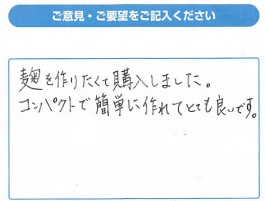 ご意見・ご要望をご記入ください
麹を作りたくて購入しました。
コンパクトで簡単に作れてとても良いです。